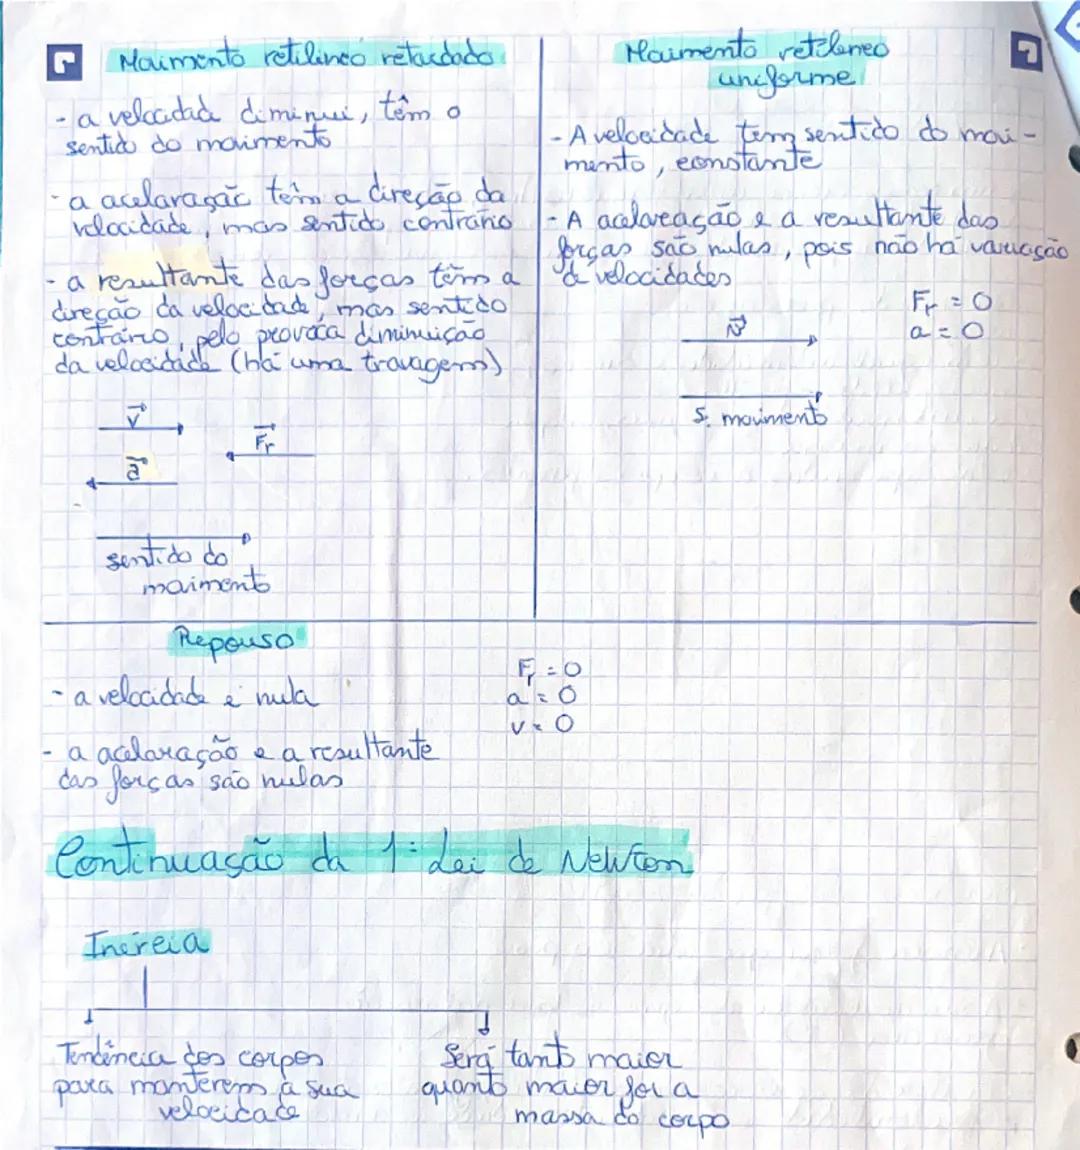 Movimento retilíneo retardado
- a velocidade diminui, têm o
sentido do movimento
- a acelaração têm a direção da
velocidade, mas sentido contrário
- a resultante das forças têm a
direção da velocidade, mas sentido
contrário, pelo provoca diminuição
da velocidade (há uma travagem)
v⃗
F⃗r
a⃗
sentido do
movimento
Movimento retelineo
uniforme
- A velocidade tem sentido do movi-
mento, constante
- A acelaração e a resultante das
forças são nulas, pois não há variação
de velocidades
Fr = 0
a = 0
v⃗
s. movimento
Repouso
- a velocidade é nula
- a acelaração e a resultante
das forças são nulas
Fr = 0
a = 0
v = 0
Continuação da 1ª Lei de Newton
Inércia
Tendência dos corpos
para manterem a sua
velocidade
Será tanto maior
quanto maior for a
massa do corpo